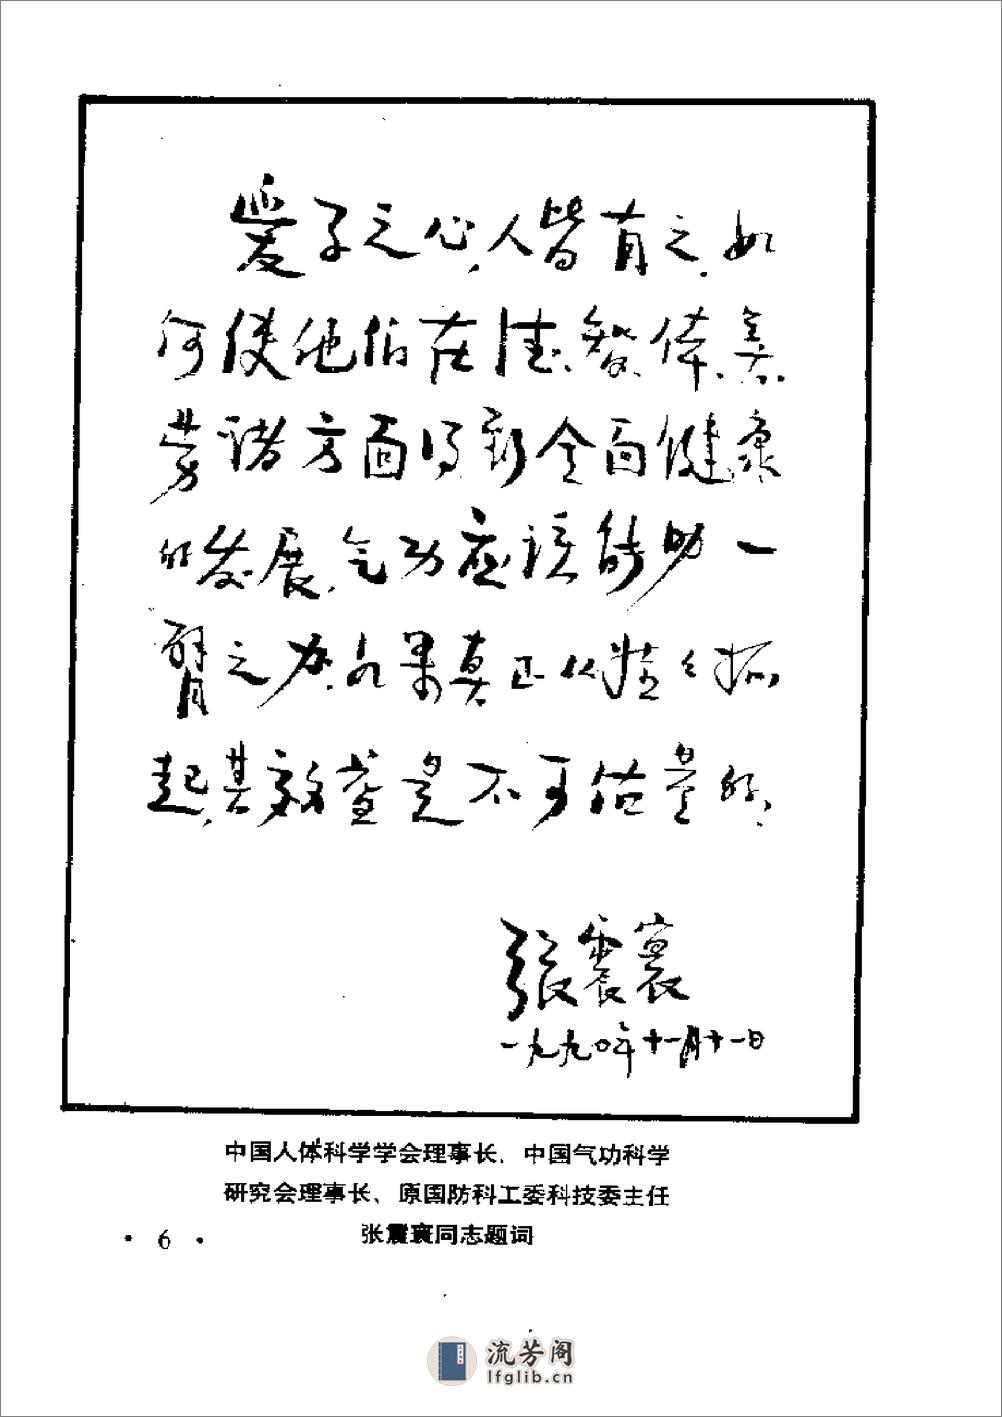 爱子之心，人皆有之，如
何使他们在德、智、体、美、
劳诸方面得到全面健康
的发展，气功应该能助一
臂之力，如果真正从娃娃抓
起，其效益是不可估量的，
张震寰
一九九〇年十一月十一日
中国人体科学学会理事长、中国气功科学
研究会理事长、原国防科工委科技委主任
张震寰同志题词
· 6 ·
流芳阁
lfglib.cn